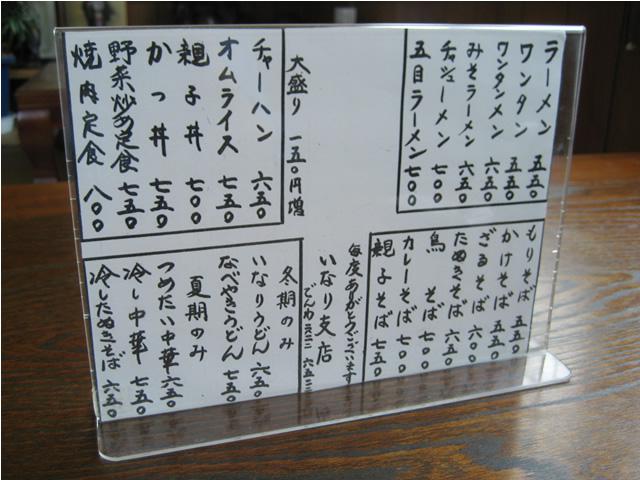 ラーメン 五五〇
ワンタン 五五〇
ワンタンメン 六五〇
みそラーメン 六五〇
チャシューメン 七〇〇
五目ラーメン 七〇〇
大盛り 一五〇円増
チャーハン 六五〇
オムライス 七五〇
親子丼 七〇〇
かつ丼 七五〇
野菜炒め定食 七五〇
焼肉定食 八〇〇
もりそば 五五〇
かけそば 五五〇
ざるそば 六〇〇
たぬきそば 六五〇
鳥そば 七〇〇
カレーそば 七〇〇
親子そば 七五〇
毎度ありがとうございます
いなり支店
でんわ
冬期のみ
いなりうどん 六五〇
なべやきうどん 七五〇
夏期のみ
つめたい中華 六五〇
冷し中華 七五〇
冷したぬきそば 六五〇